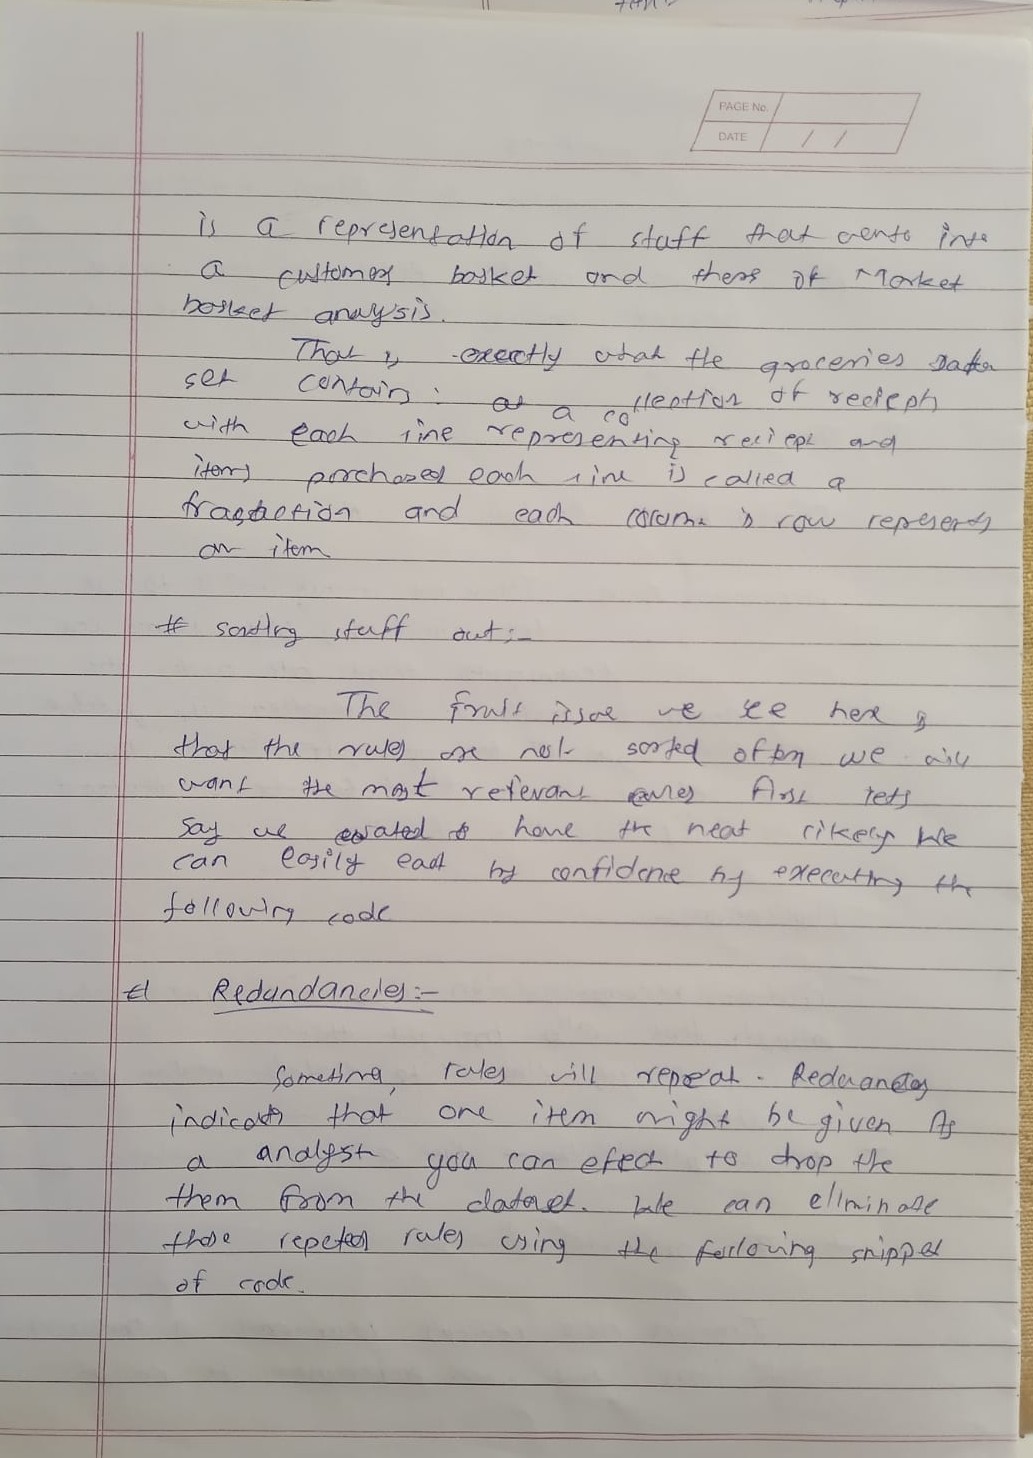 PAGE No.
DATE / /
is a representation of stuff that into
a customer basket and there of Market
basket analysis.
That is exactly what the groceries data
set contain : a collection of
with each line representing and
items purchased each line is called a
and each is row represents
an item
# sorting stuff out :-
The issue we see here is
that the rules are not sorted often we will
want the most relevant first lets
say we to have the likely We
can easily by confidence by executing the
following code
Redundancies :-
rules will repeat.
indicate that one item might be given As
a analyst you can to drop the
them from the dataset. We can eliminate
those rules using the following
of code.